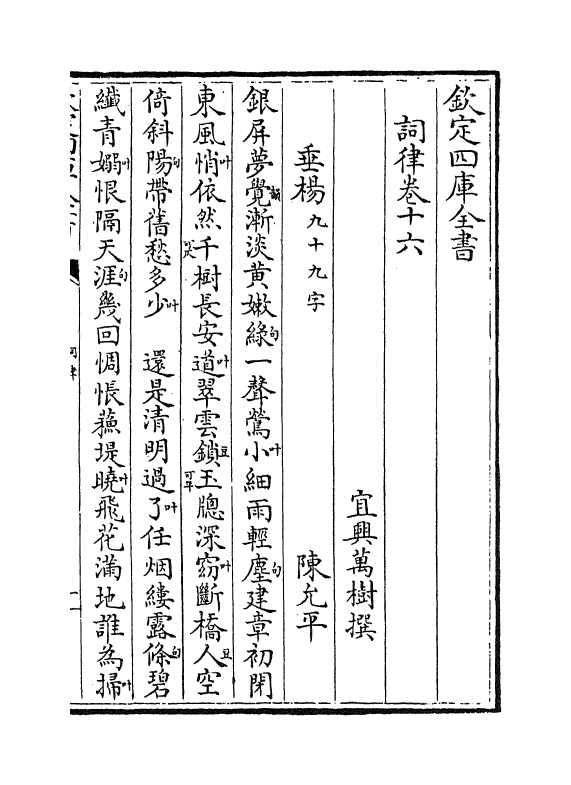 欽定四庫全書
詞律卷十六
宜興萬樹撰
垂楊九十九字 陳允平
銀屏夢覺韻漸淡黄嫩綠句一聲鶯小叶細雨輕塵句建章初閉
東風悄叶依然千可仄樹長安道叶翠雲鎖豆玉可平牕深窈叶斷橋人豆空
倚斜陽句帶舊愁多少叶 還是清明過了叶任烟縷露條句碧
纖青嫋叶恨隔天涯句幾回惆悵蘓堤曉叶飛花滿地誰為掃叶
詞律